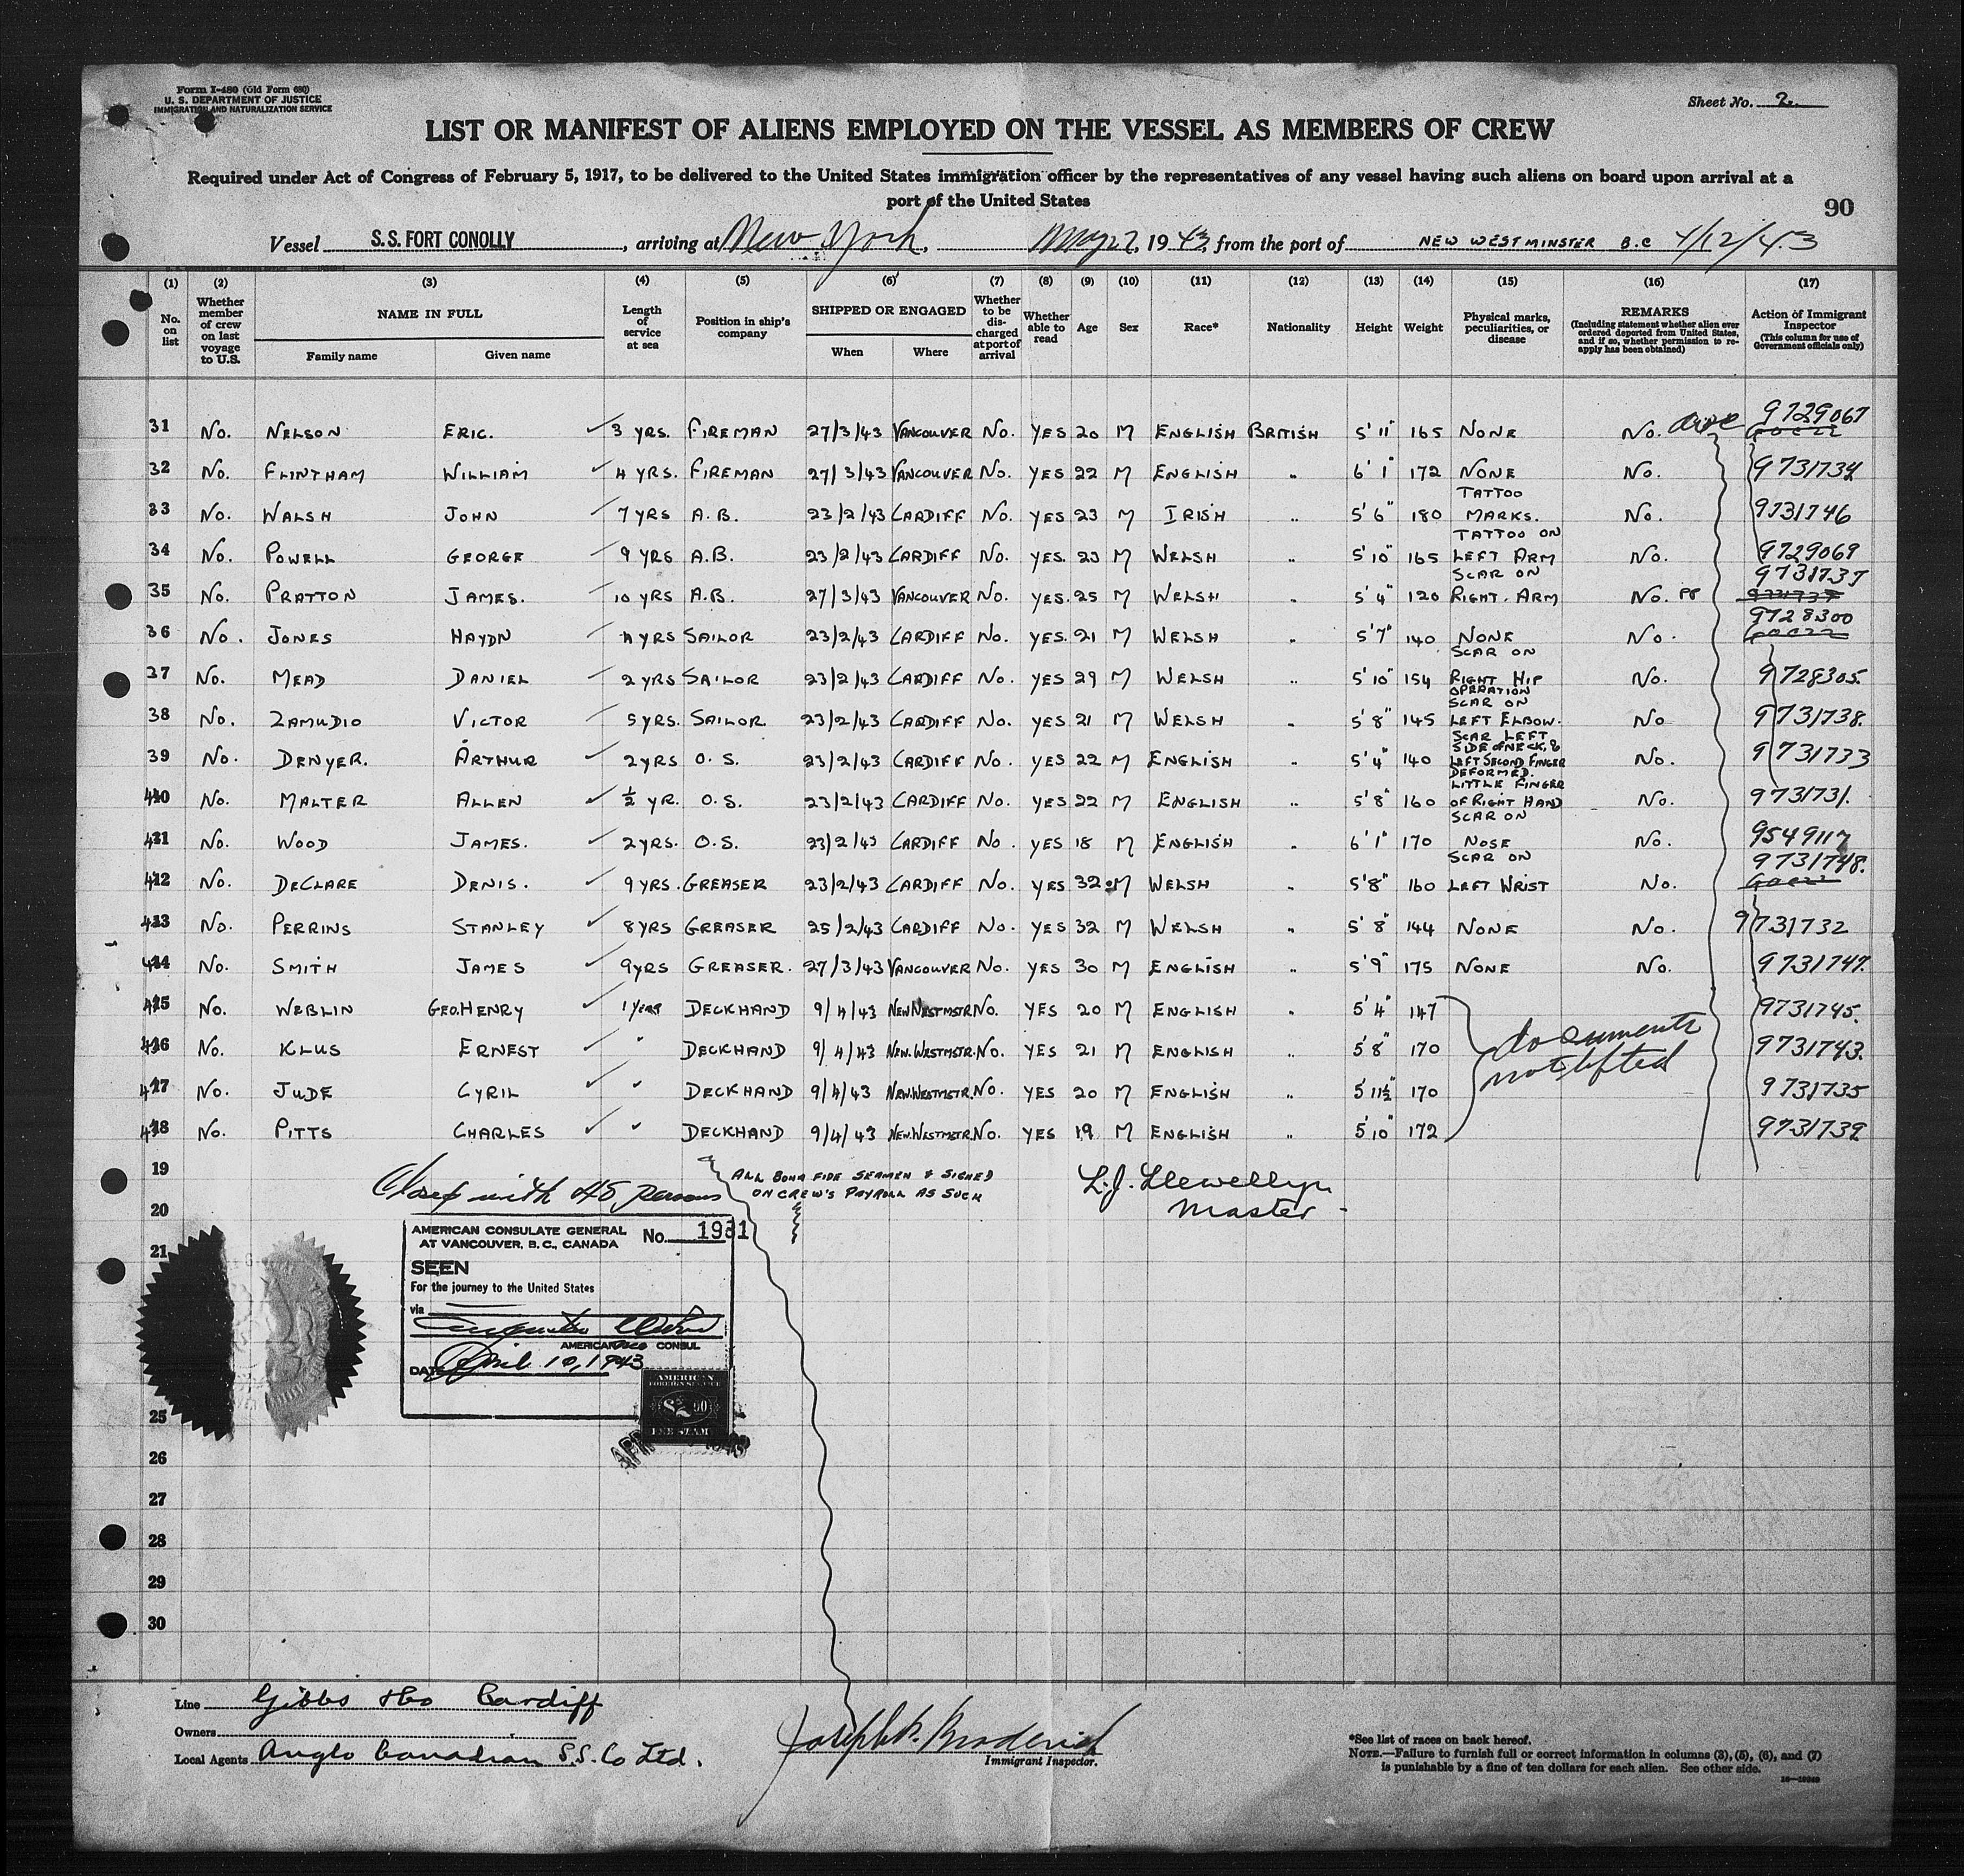 Form I-480 (Old Form 680)
U. S. DEPARTMENT OF JUSTICE
IMMIGRATION AND NATURALIZATION SERVICE
Sheet No. 2
LIST OR MANIFEST OF ALIENS EMPLOYED ON THE VESSEL AS MEMBERS OF CREW
Required under Act of Congress of February 5, 1917, to be delivered to the United States immigration officer by the representatives of any vessel having such aliens on board upon arrival at a
port of the United States
90
Vessel S.S. FORT CONOLLY, arriving at New York, May 2, 1943, from the port of NEW WESTMINSTER B.C 4/12/43
(1) (2) (3) (4) (5) (6) (7) (8) (9) (10) (11) (12) (13) (14) (15) (16) (17)
No. on list
Whether member of crew on last voyage to U.S.
NAME IN FULL
Family name Given name
Length of service at sea
Position in ship's company
SHIPPED OR ENGAGED
When Where
Whether to be discharged at port of arrival
Whether able to read
Age Sex Race* Nationality Height Weight
Physical marks, peculiarities, or disease
REMARKS
(Including statement whether alien ever ordered deported from United States, and if so, whether permission to reapply has been obtained)
Action of Immigrant Inspector
(This column for use of Government officials only)
31 No. NELSON ERIC. ✓ 3 YRS. FIREMAN 27/3/43 VANCOUVER No. YES 20 M ENGLISH BRITISH 5'11" 165 NONE No. 9729067
32 No. FLINTHAM WILLIAM ✓ 4 YRS. FIREMAN 27/3/43 VANCOUVER No. YES 22 M ENGLISH " 6'1" 172 NONE No. 9731734
33 No. WALSH JOHN ✓ 7 YRS A.B. 23/2/43 CARDIFF No. YES 23 M IRISH " 5'6" 180 TATTOO MARKS. No. 9731746
34 No. POWELL GEORGE ✓ 9 YRS A.B. 23/2/43 CARDIFF No. YES. 23 M WELSH " 5'10" 165 TATTOO ON LEFT ARM No. 9729069
35 No. PRATTON JAMES. ✓ 10 YRS A.B. 27/3/43 VANCOUVER No. YES. 25 M WELSH " 5'4" 120 SCAR ON RIGHT. ARM No. PR 9731737
36 No. JONES HAYDN ✓ 4 YRS SAILOR 23/2/43 CARDIFF No. YES. 21 M WELSH " 5'7" 140 NONE No. 9728300
37 No. MEAD DANIEL ✓ 2 YRS SAILOR 23/2/43 CARDIFF No. YES 29 M WELSH " 5'10" 154 SCAR ON RIGHT HIP OPERATION No. 9728305.
38 No. ZAMUDIO VICTOR ✓ 5 YRS. SAILOR 23/2/43 CARDIFF No. YES 21 M WELSH " 5'8" 145 SCAR ON LEFT ELBOW. No 9731738.
39 No. DENYER. ARTHUR ✓ 2 YRS O.S. 23/2/43 CARDIFF No. YES 22 M ENGLISH " 5'4" 140 SCAR LEFT SIDE OF NECK, & LEFT SECOND FINGER DEFORMED. No. 9731733
40 No. MALTER ALLEN ✓ ½ YR. O.S. 23/2/43 CARDIFF No. YES 22 M ENGLISH " 5'8" 160 LITTLE FINGER OF RIGHT HAND No. 9731731.
41 No. WOOD JAMES. ✓ 2 YRS. O.S. 23/2/43 CARDIFF No. YES 18 M ENGLISH " 6'1" 170 SCAR ON NOSE No. 9549117
42 No. DECLARE DENIS. ✓ 9 YRS. GREASER 23/2/43 CARDIFF No. YES 32 M WELSH " 5'8" 160 SCAR ON LEFT WRIST No. 9731748.
43 No. PERRINS STANLEY ✓ 8 YRS GREASER 25/2/43 CARDIFF No. YES 32 M WELSH " 5'8" 144 NONE No. 9731732
44 No. SMITH JAMES ✓ 9 YRS GREASER. 27/3/43 VANCOUVER No. YES 30 M ENGLISH " 5'9" 175 NONE No. 9731747.
45 No. WEBLIN GEO. HENRY ✓ 1 year DECKHAND 9/4/43 NEW WESTMSTR No. YES 20 M ENGLISH " 5'4" 147 9731745.
46 No. KLUS ERNEST ✓ " DECKHAND 9/4/43 NEW. WESTMSTR. No. YES 21 M ENGLISH " 5'8" 170 9731743.
47 No. JUDE CYRIL ✓ " DECKHAND 9/4/43 NEW. WESTMSTR. No. YES 20 M ENGLISH " 5'11½" 170 9731735
48 No. PITTS CHARLES ✓ " DECKHAND 9/4/43 NEW. WESTMSTR. No. YES 19 M ENGLISH " 5'10" 172 9731739
documents
not lifted
19
Closed with 48 persons
ALL BONA FIDE SEAMEN & SIGNED
ON CREW'S PAYROLL AS SUCH
L.J. Llewellyn
Master
20
21
AMERICAN CONSULATE GENERAL
AT VANCOUVER, B.C., CANADA
No. 1931
SEEN
For the journey to the United States
via
AMERICAN Vice CONSUL
DATE April 10, 1943
AMERICAN
FOREIGN SERVICE
$2.00
FEE STAMP
25
26
27
28
29
30
Line Gibbs & Co Cardiff
Owners
Local Agents Anglo Canadian S.S. Co Ltd.
Joseph P. Broderick
Immigrant Inspector.
*See list of races on back hereof.
NOTE.—Failure to furnish full or correct information in columns (3), (5), (6), and (7)
is punishable by a fine of ten dollars for each alien. See other side.